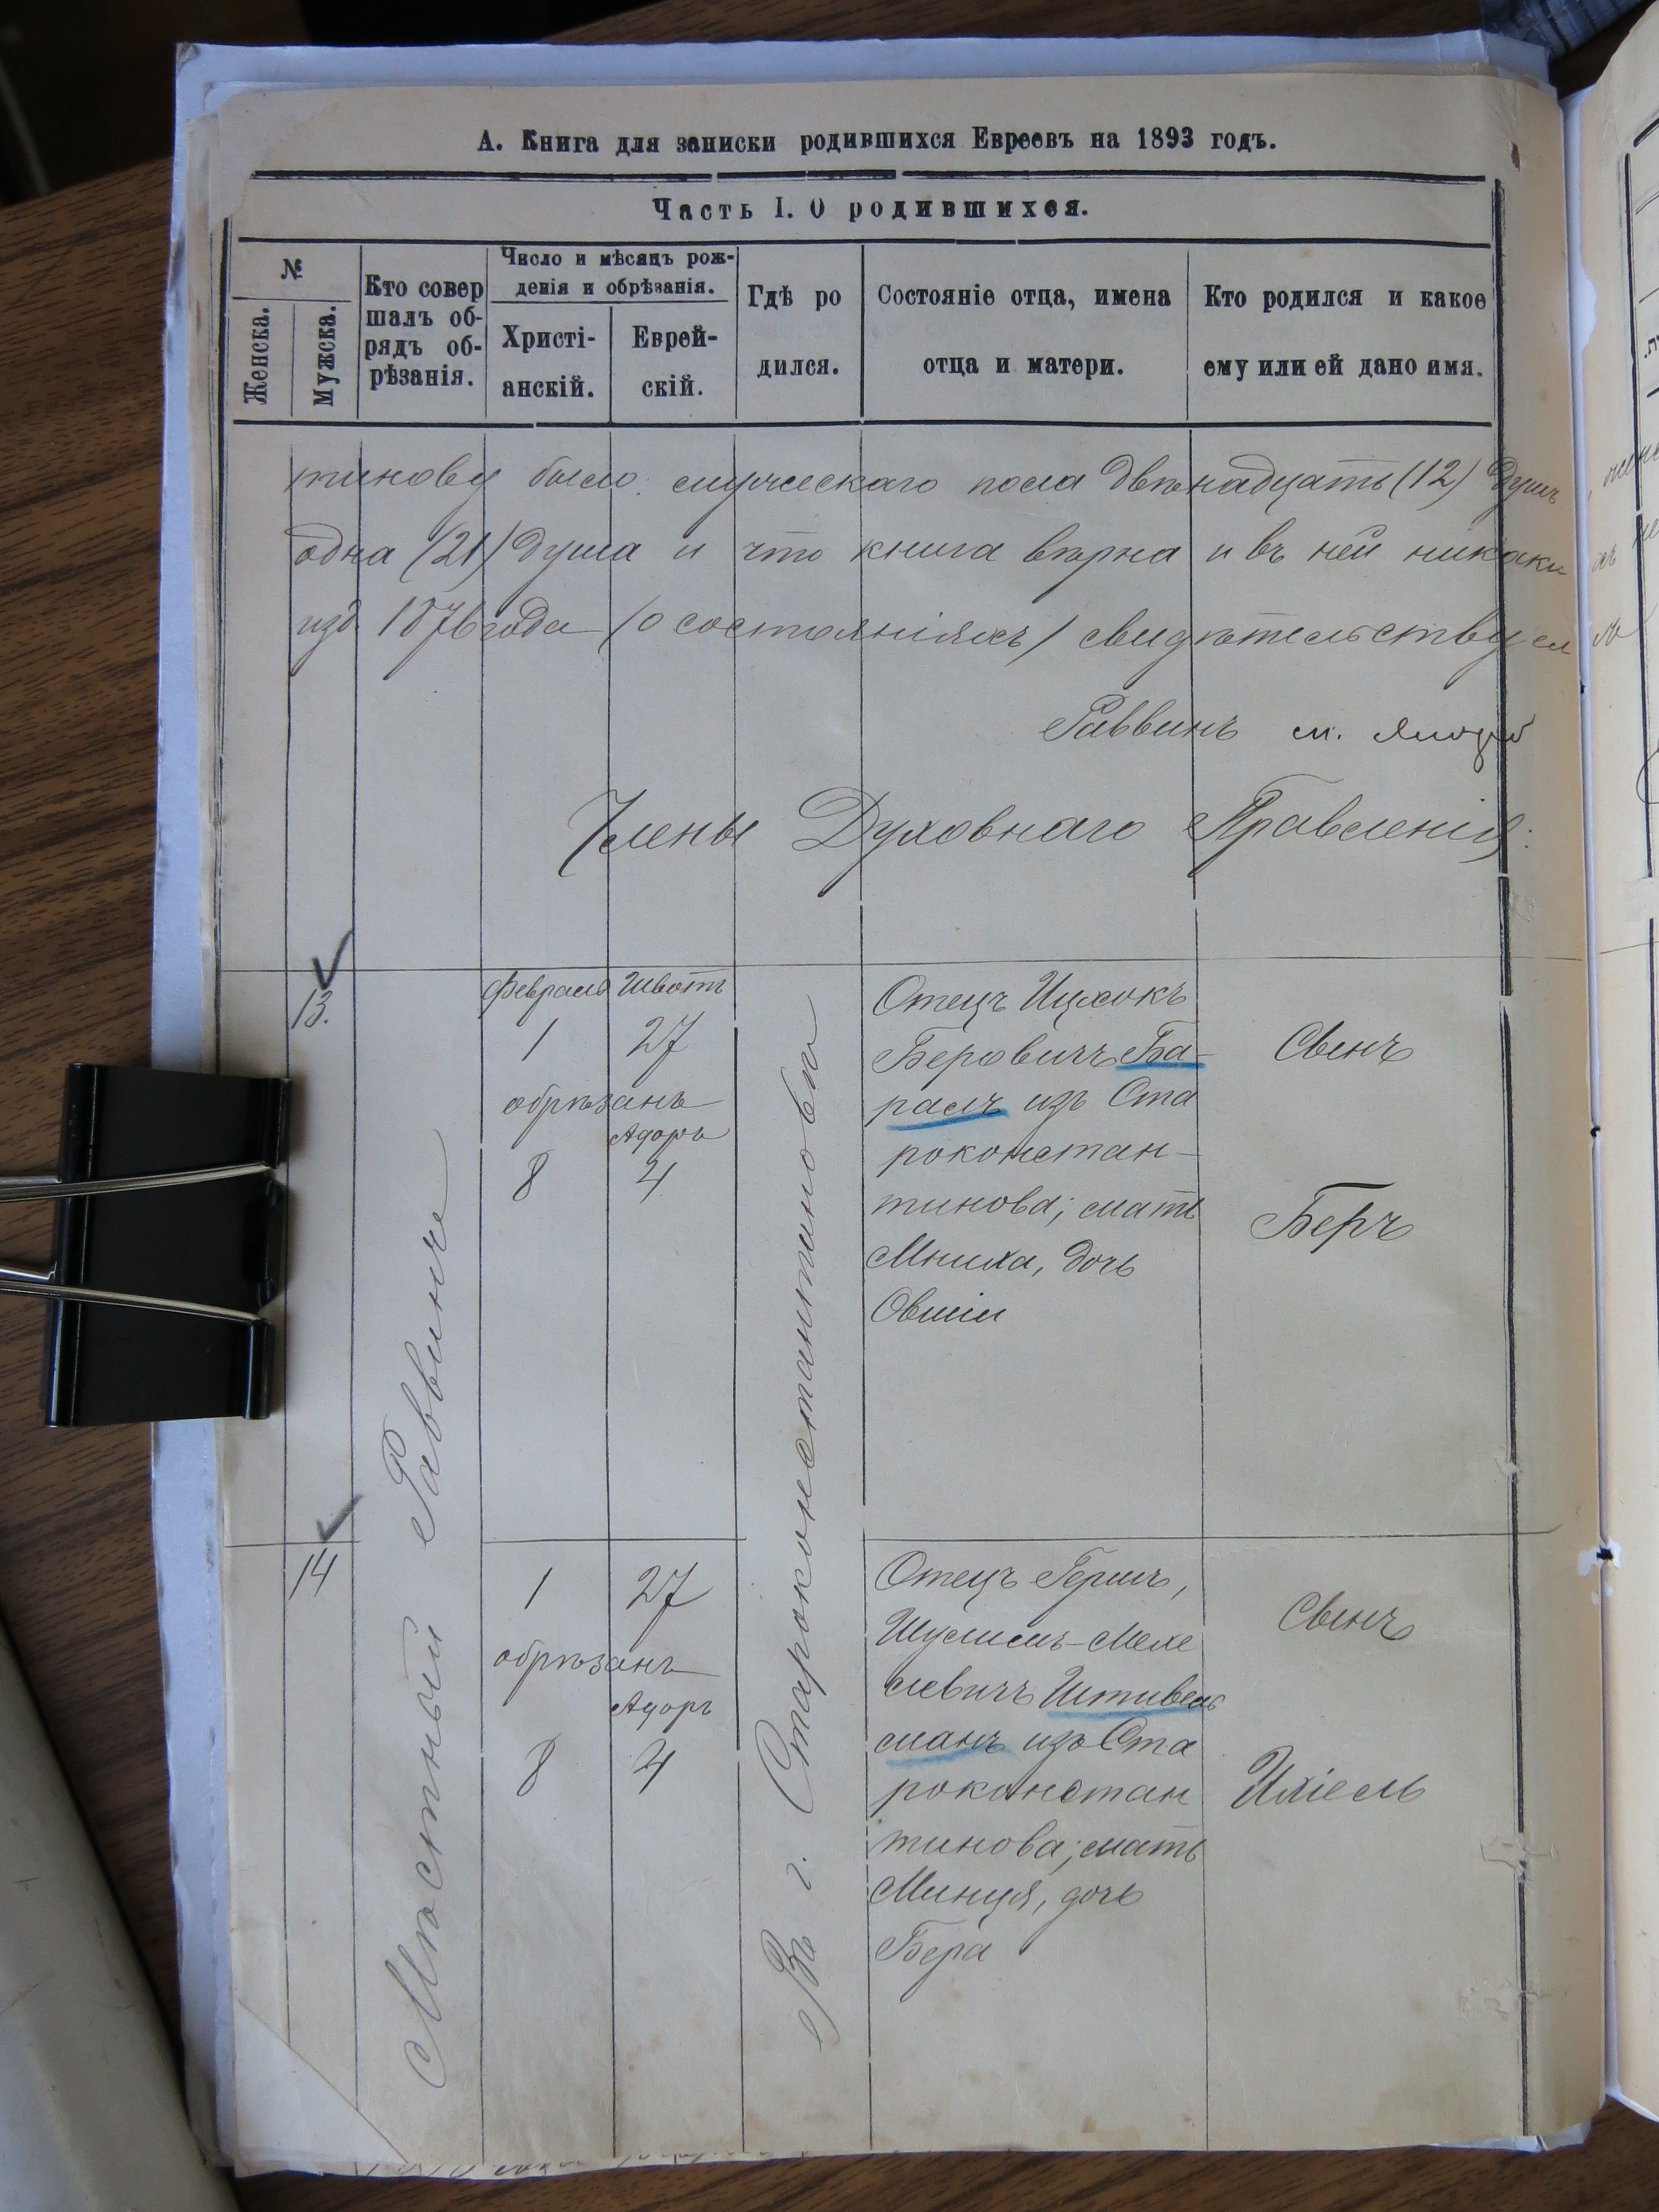 А. Книга для записки родившихся Евреевъ на 1893 годъ.
Часть I. О родившихся.
№
Женска.
Мужска.
Кто совер
шалъ об-
рядъ об-
рѣзанія.
Число и мѣсяцъ рож-
денія и обрѣзанія.
Христі-
анскій.
Еврей-
скій.
Гдѣ ро
дился.
Состояніе отца, имена
отца и матери.
Кто родился и какое
ему или ей дано имя.
тинову было: мужескаго пола двѣнадцать (12) душъ
одна (21) душа и что книга вѣрна и въ ней никаки
изд 1876 года (о состояніяхъ) свидѣтельствуем
Раввинъ м.
Члены Духовнаго Правленія:
13.
Мѣстный Раввинъ
Февраль Шватъ
1 27
обрѣзанъ
Адоръ
8 4
Въ г. Староконстантиновѣ
Отецъ Ицхокъ
Беровичъ Ба-
ралъ изъ Ста
роконстан-
тинова; мать
Мниха, дочь
Овшіи
Сынъ
Беръ
14
1 27
обрѣзанъ
Адоръ
8 4
Отецъ Гершъ,
Шулимъ-Меле
левичъ Штивель
манъ изъ Ста
роконстан
тинова; мать
Минця, дочь
Бера
Сынъ
Ихіель